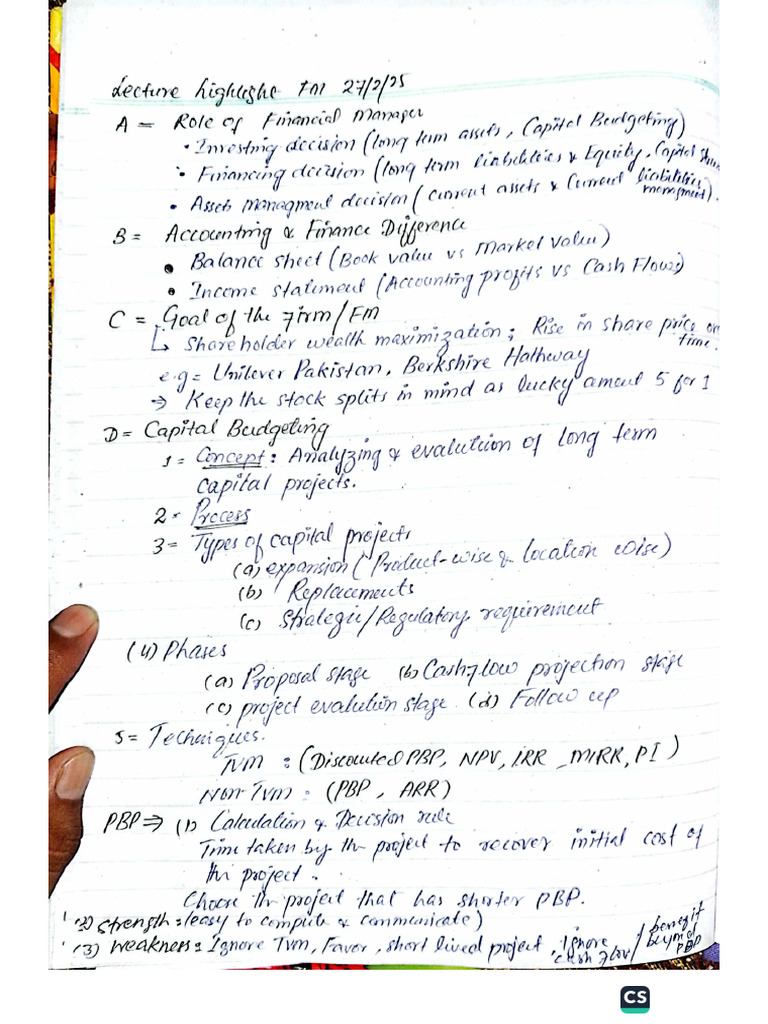 Lecture highlight FM 27/2/25
A = Role of Financial Manager
• Investing decision (long term assets, Capital Budgeting)
• Financing decision (long term liabilities & Equity, Capital
• Assets managment decision (current assets & Current liabilities managment).
B = Accounting & Finance Difference
• Balance sheet (Book value vs Market value)
• Income statement (Accounting profits vs Cash Flows)
C = Goal of the firm/FM
↳ Shareholder wealth maximization; Rise in share price time.
e.g = Unilever Pakistan, Berkshire Hathway
⇒ Keep the stock splits in mind as lucky amout 5 for 1
D = Capital Budgeting
1 = Concept: Analyzing & evalution of long term
capital projects.
2 = Process
3 = Types of capital projects
(a) expansion (Product-wise & location wise)
(b) Replacements
(c) Strategic/Regulatory requirement
(4) Phases
(a) Proposal stage (b) Cashflow projection stage
(c) project evalution stage (d) Follow up
5 = Techniques.
TVM : (Discounted PBP, NPV, IRR, MIRR, PI)
Non TVM : (PBP, ARR)
PBP ⇒ (1) Calculation & Decision rule
Time taken by the project to recover initial cost of
the project.
Choose the project that has shorter PBP.
(2) Strength: (easy to compute & communicate)
(3) Weakness: Ignore TVM, Favor, short lived project, ignore cash flow/benefit beyond PBP